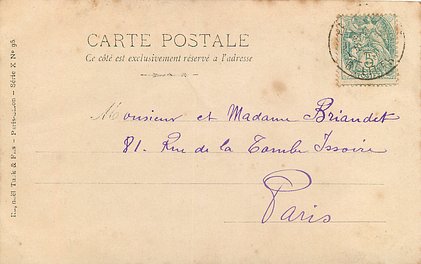 CARTE POSTALE
Ce côté est exclusivement réservé a l'adresse
5
Monsieur et Madame Briandet
81. Rue de la Tombe Issoire
Paris
Raphaël Tuck & Fils - Paris - Série X No 95